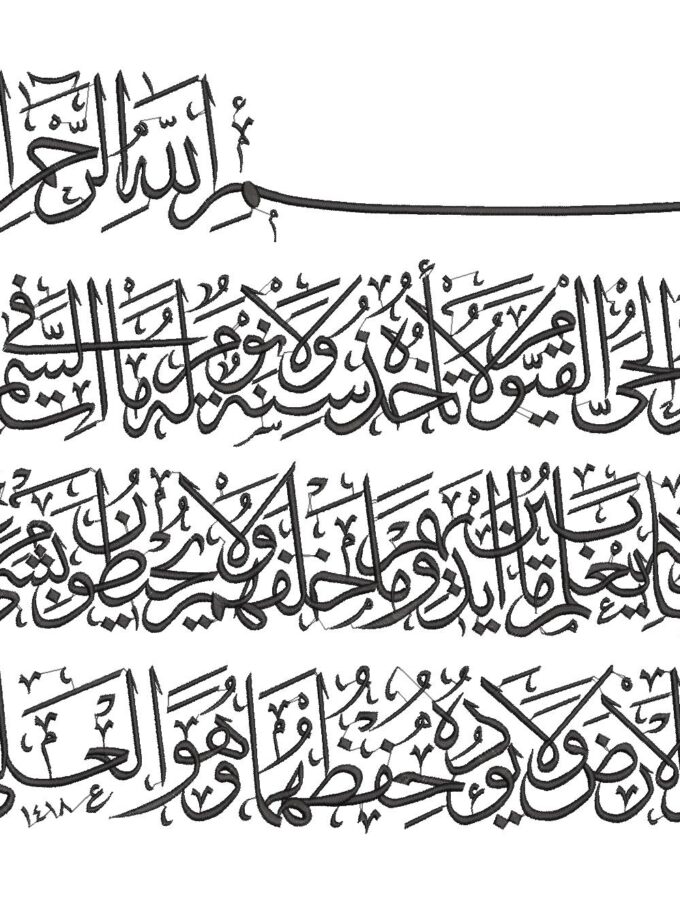 م الله الرحم
الحي القيوم لا تأخذه سنة ولا نوم له ما في السم
يعلم ما بين ايديهم وما خلفهم ولا يحيطون بش
الارض ولا يؤده حفظهما وهو العل
١٤١٨